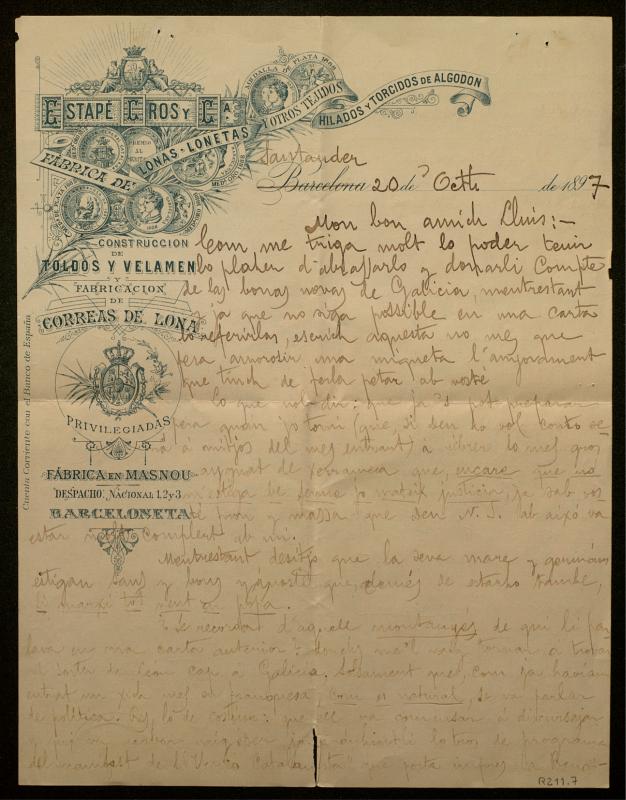 ESTAPÉ GROS Y Cª
MEDALLA DE PLATA 1888
Y OTROS TEJIDOS
HILADOS Y TORCIDOS DE ALGODON
FÁBRICA DE LONAS-LONETAS
PREMIO AL
CONSTRUCCION
DE
TOLDOS Y VELAMEN
Y
FABRICACION
DE
CORREAS DE LONA
PRIVILEGIADAS
FÁBRICA EN MASNOU
DESPACHO, NACIONAL 1, 2 y 3
BARCELONETA
Cuenta Corriente con el Banco de España
Santander
Barcelona 20 de Octb de 1897
Mon bon amich Lluis:—
Com me triga molt lo poder tenir
lo plaher d'abrassarlo y donarli compte
de las bonas novas de Galicia, mentrestant
y ja que no siga possible en una carta
referirlas, escrich aquesta no mes que
pera amorosir una miqueta l'anyorament
que tinch de ferla petar ab vosté
Lo que vol dir: que ja's pot preparar
pera quan jo torni (que, si Deu ho vol, conto
á mitjos del mes entrant) á rébrer lo mes gros
aygnat de xerrameca que, encare que no
m'estiga be ferme jo mateix justicia, ja sab vos
té prou y massa que Deu N. S. ab aixó va
estar molt complert ab mi.
Mentrestant desitjo que la seva mare y germáns
estigan sans y bons y que, demés de estarho també,
li marxi tot vent en popa.
¿Se recordat d'aquell montanyes de qui li par
lava en ma carta anterior? donchs me'l vaig tornar a trovar
al sortir de León cap á Galicia. Solsament que, com ja haviam
entrat un xich mes en franquesa com es natural, se va parlar
de política. Ey, lo de costum: que ell va comensar á discursejar
y jo á lo tros de programa
del manifest de "La Catalanista" que porta
R211.7